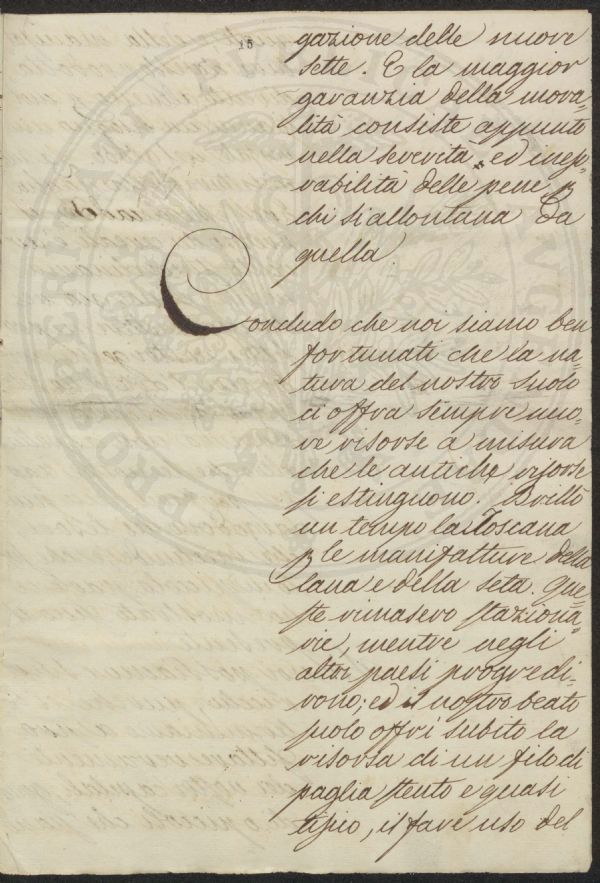 15
gazione delle nuove
sette. E la maggior
garanzia della mora=
lità consiste appunto
nella severità, ed inep=
rabilità delle pene p
chi si allontana da
quella.
Concludo che noi siamo ben
fortunati che la na=
tura del nostro suolo
ci offra sempre nuo=
ve risorse a misura
che le antiche risorse
si estinguono. Brillò
un tempo la Toscana
p le manifatture della
lana e della seta. Que=
ste rimasero staziona=
rie, mentre negli
altri paesi progredi=
rono; ed il nostro beato
suolo offrì subito la
risorsa di un filo di
paglia stento e quasi
tisico, il fare uso del